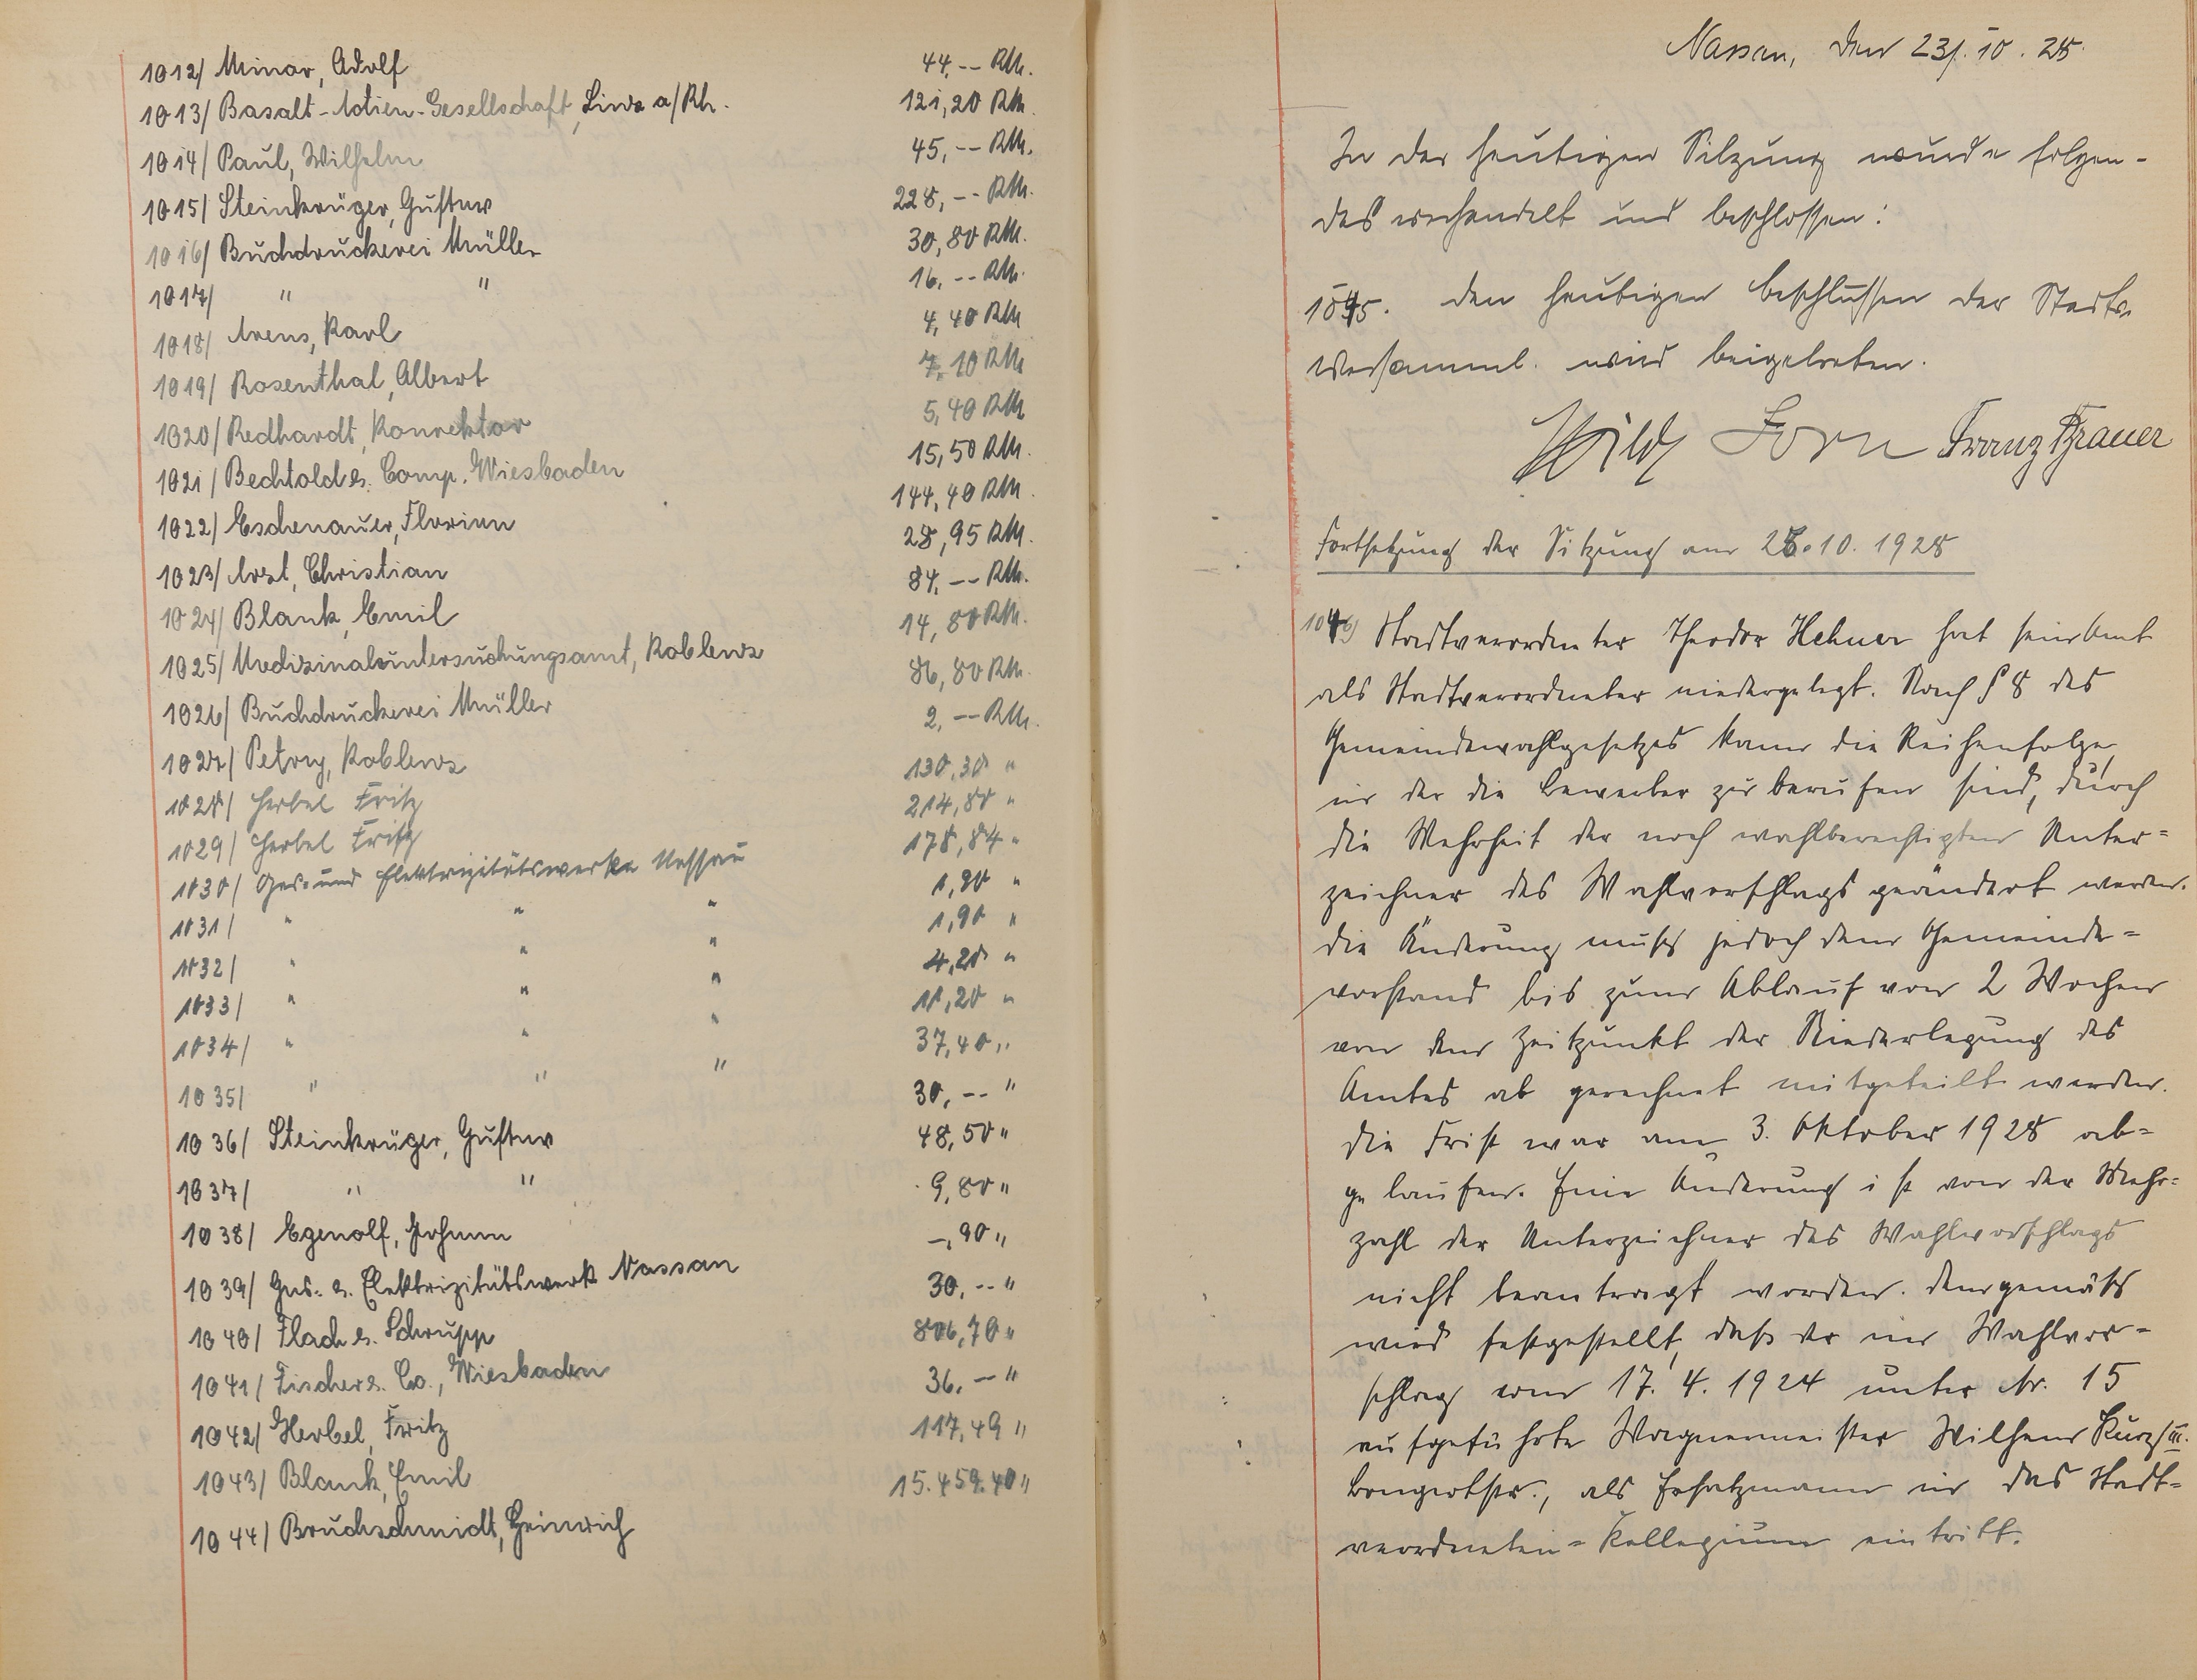 1012/ Minor, Adolf 44,-- RM.
1013/ Basalt-Actien-Gesellschaft, Linz a/Rh. 121,20 RM.
1014/ Paul, Wilhelm 45,-- RM.
1015/ Steinkrüger, Gustav 228,-- RM.
1016/ Buchdruckerei Müller 30,80 RM.
1017/ " " 16,-- RM.
1018/ Arens, Karl 4,40 RM
1019/ Rosenthal, Albert 7,10 RM
1020/ Redhardt, Konrektor 5,40 RM
1021/ Bechtold & Comp. Wiesbaden 15,50 RM.
1022/ Eschenauer, Florian 144,40 RM.
1023/ Arzt, Christian 28,95 RM.
1024/ Blank, Emil 84,-- RM.
1025/ Medizinaluntersuchungsamt, Koblenz 14,80 RM.
1026/ Buchdruckerei Müller 86,80 RM.
1027/ Petry, Koblenz 2,-- RM.
1028/ Herbel Fritz 130,30 "
1029/ Herbel Fritz 214,80 "
1030/ Gas- und Elektrizitätswerke Nassau 178,84 "
1031/ " " " 1,90 "
1032/ " " " 1,90 "
1033/ " " " 4,20 "
1034/ " " " 11,20 "
1035/ " " " 37,40 "
1036/ Steinkrüger, Gustav 30,-- "
1037/ " " 48,50 "
1038/ Egenolf, Johann 9,80 "
1039/ Gas- & Elektrizitätswerk Nassau -,90 "
1040/ Flach & Schrupp 30,-- "
1041/ Fischer & Co., Wiesbaden 806,70 "
1042/ Herbel, Fritz 36,- "
1043/ Blank, Emil 117,49 "
1044/ Bruchschmidt, Heinrich 15.459.40 "
Nassau, den 23/.10.28.
In der heutigen Sitzung wurde folgen-
des verhandelt und beschlossen:
1045. Den heutigen Beschlüssen der Stadtv.
Versamml. wird beigetreten.
Wild Zorn Franz Brauer
Fortsetzung der Sitzung am 26.10.1928
1046) Stadtverordneter Theodor Hehner hat sein Amt
als Stadtverordneter niedergelegt. Nach § 8 des
Gemeindewahlgesetzes kann die Reihenfolge,
in der die Bewerber zu berufen sind, durch
die Mehrheit der noch wahlberechtigten Unter=
zeichner des Wahlvorschlags geändert werden.
Die Änderung muß jedoch dem Gemeinde=
vorstand bis zum Ablauf von 2 Wochen
von dem Zeitpunkt der Niederlegung des
Amtes ab gerechnet mitgeteilt werden.
Die Frist war am 3. Oktober 1928 ab=
gelaufen. Eine Änderung ist von der Mehr=
zahl der Unterzeichner des Wahlvorschlags
nicht beantragt worden. Demgemäß
wird festgestellt, daß der im Wahlvor=
schlag vom 17.4.1924 unter Nr. 15
aufgeführte Wagnermeister Wilhelm Kurz III.
Bongertstr., als Ersatzmann in das Stadt=
verordneten=Kollegium eintritt.